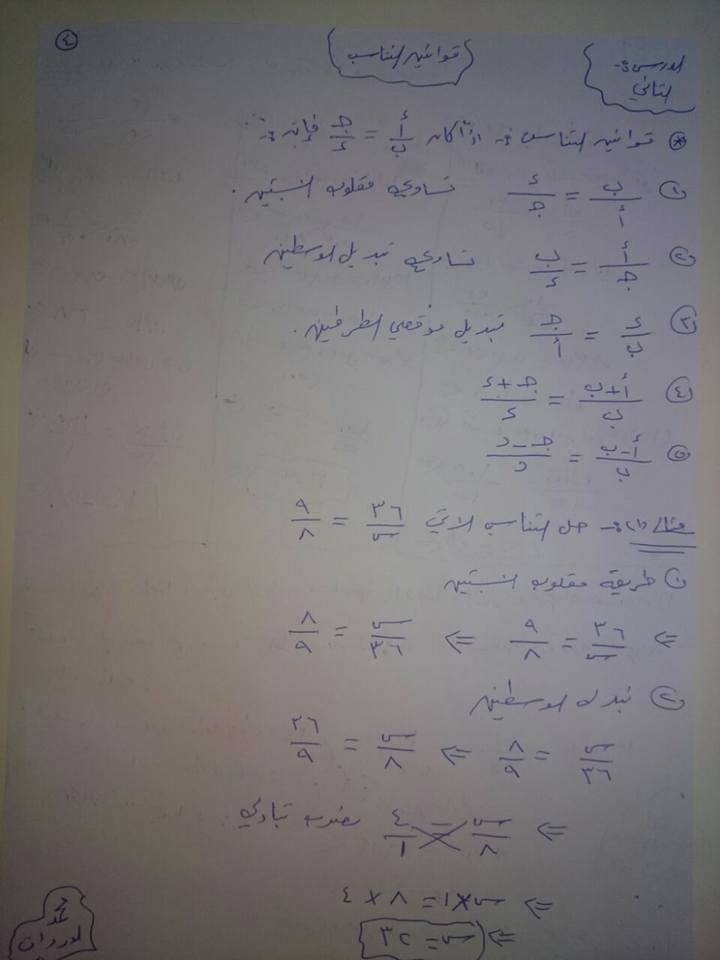 ٤
قوانين التناسب
الدرس :-
الثاني
* قوانين التناسب :- إذا كان أ/ب = جـ/ء فإنه :-
١ ب/أ = ء/جـ تساوي مقلوب النسبتين .
٢ أ/جـ = ب/ء تساوي تبديل الوسطين
٣ ء/ب = جـ/أ تبديل موقعي الطرفين .
٤ أ+ب/ب = جـ+ء/ء
٥ أ-ب/ب = جـ-د/د
مثال (١) :- حل التناسب الآتي ٣٦/س = ٩/٨
١ طريقة مقلوب النسبتين
⇐ ٣٦/س = ٩/٨ ⇐ س/٣٦ = ٨/٩
٢ نبدل الوسطين
س/٣٦ = ٨/٩ ⇐ س/٨ = ٣٦/٩
⇐ س/٨ = ٤/١ بضرب تبادلي
⇐ س×١ = ٨ × ٤
⇐ س = ٣٢
محمد
الوردات